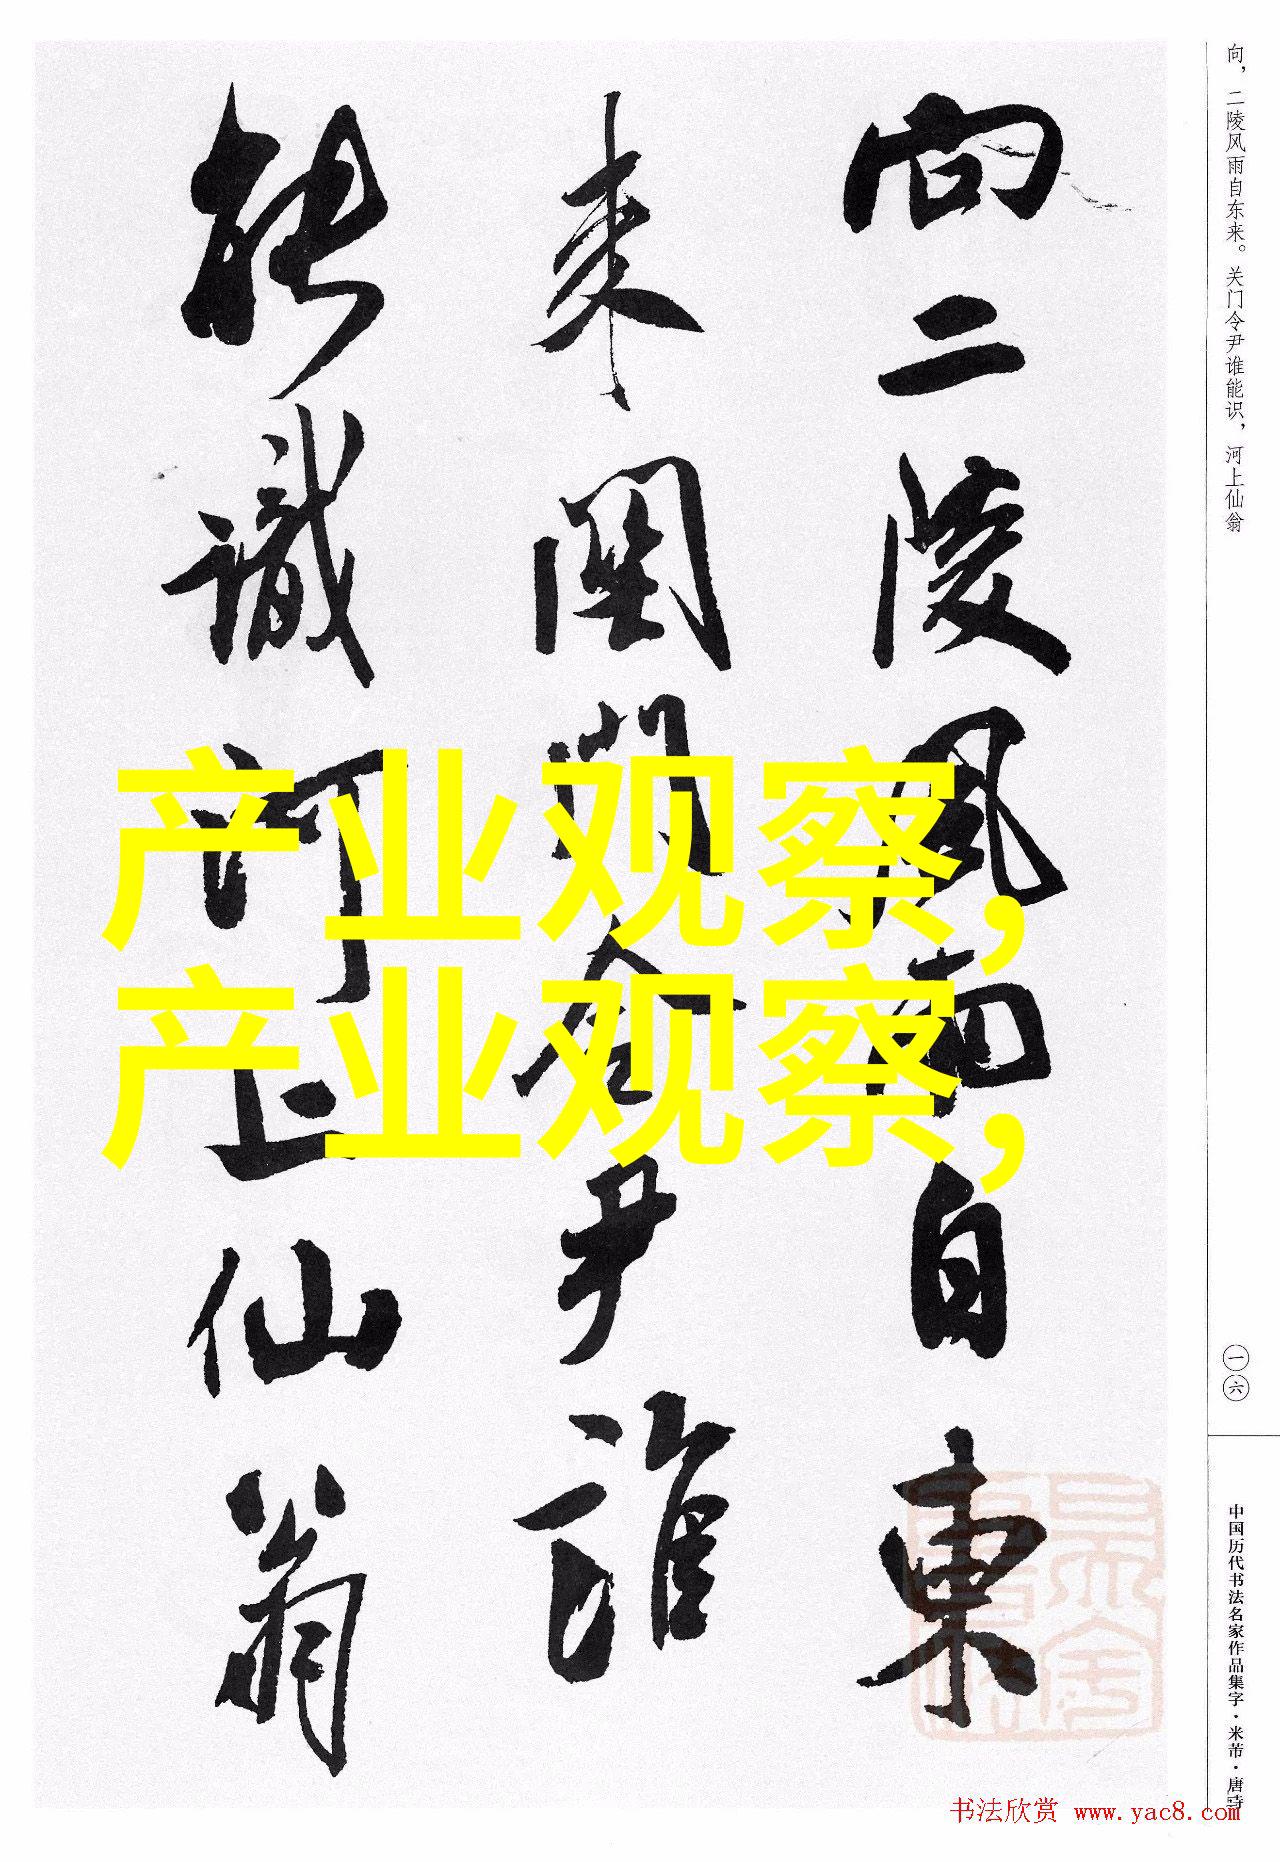 向二陵风雨自東
来関門令尹誰
能識河上仙翁
向，二陵风雨自东来。关门令尹谁能识，河上仙翁
一六
中国历代书法名家作品集字·米芾·唐诗
产业观察，
产业观察，
书法欣赏 www.yac8.com